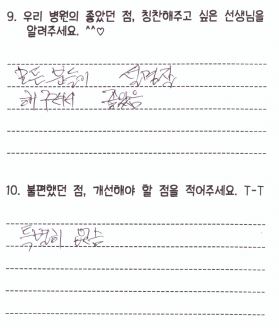 9. 우리 병원의 좋았던 점, 칭찬해주고 싶은 선생님을
알려주세요. ^^♡
모든 분들이 설명잘
해주셔서 좋았음
10. 불편했던 점, 개선해야 할 점을 적어주세요. T-T
특별히 없음